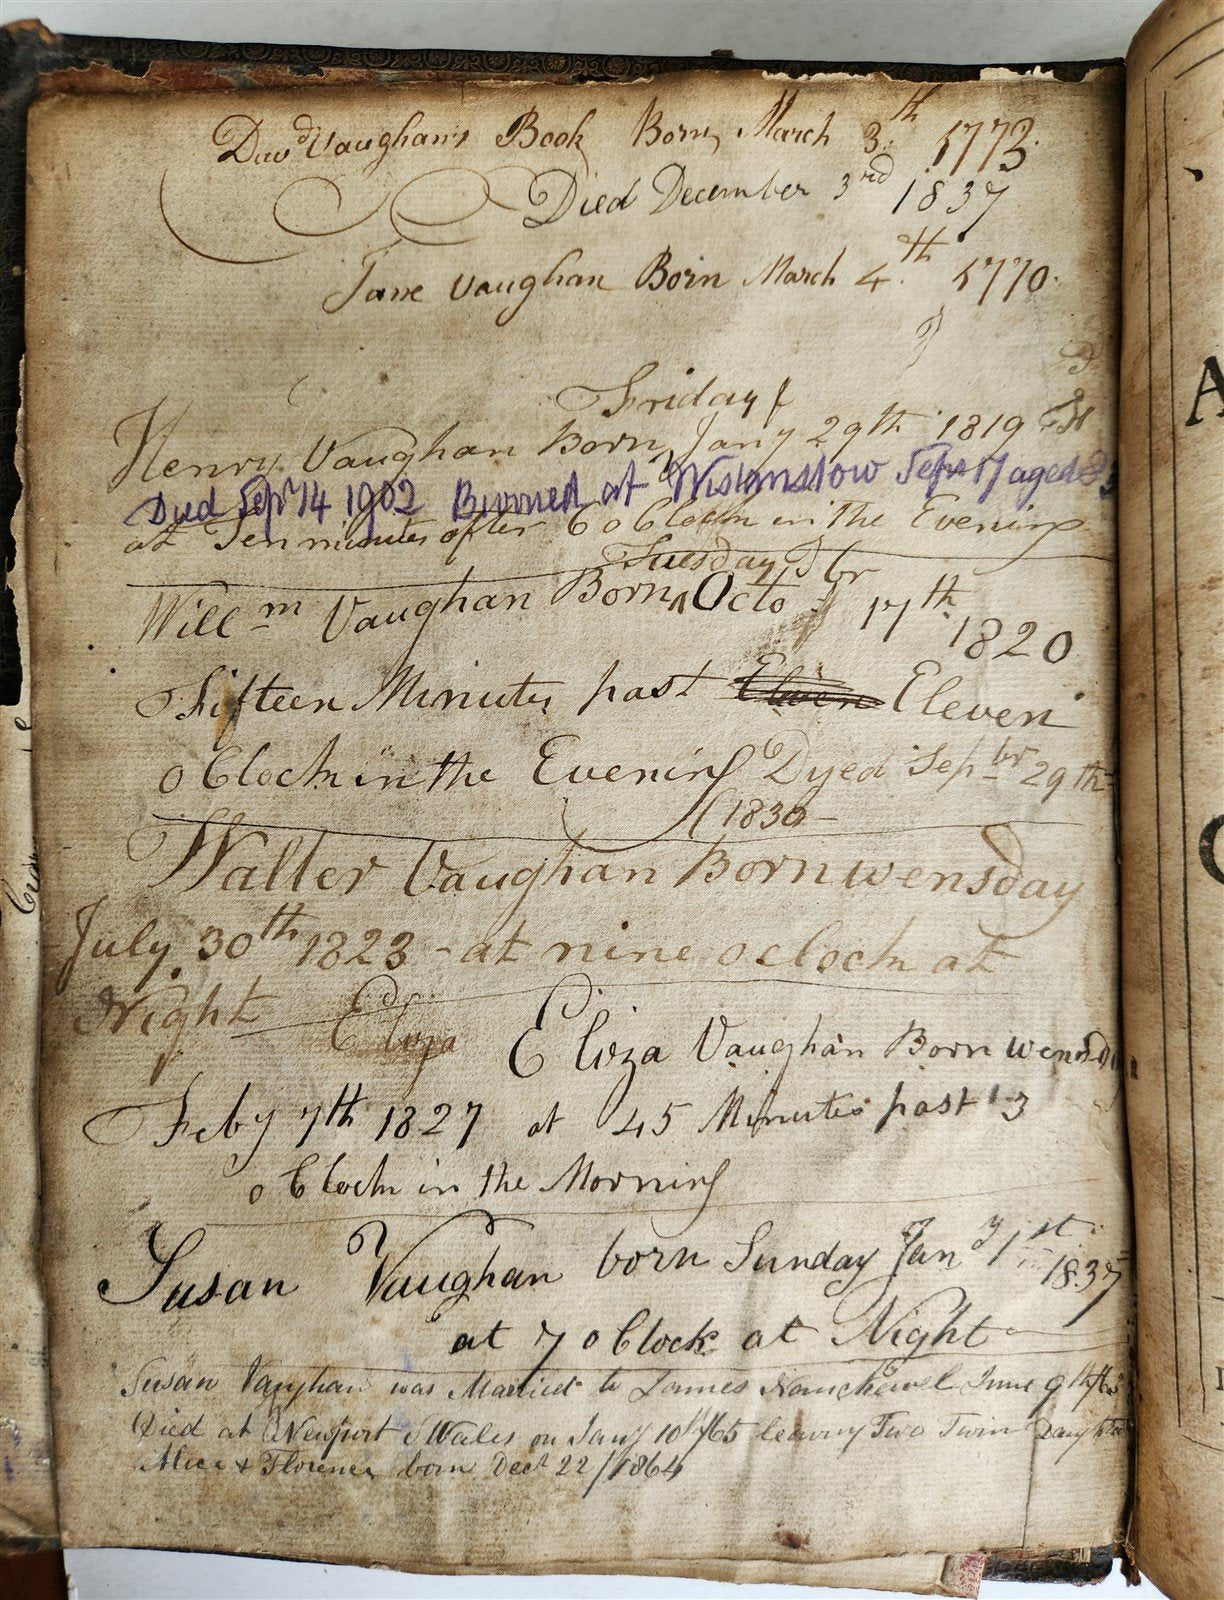 Davd Vaughan's Book Born March 3th 1773
Died December 3rd 1837
Jane Vaughan Born March 4th 1770
Friday
Henry Vaughan Born Jany 29th 1819
Died Sepr 14 1902 Burried at Wistanstow Sept 17 aged 83
at Ten minutes after 6 o Clock in the Evening
Tuesday
Willm Vaughan Born Octobr 17th 1820
Fifteen Minutes past Eleven
o Clock in the Evening Dyed Sepbr 29th
1830
Walter Vaughan Born wensday
July 30th 1823 - at nine o clock at
Night Eliza Eliza Vaughan Born wensd
Feby 7th 1827 at 45 Minutes past 3
o Clock in the Morning
Susan Vaughan born Sunday Jany 1st 1837
at 7 o Clock at Night
Susan Vaughan was Married to James June 9th
Died at Newport Wales on Jany 10th/65 leaving Two Twin Daughters
Alice & Florence born Decr 22/1864